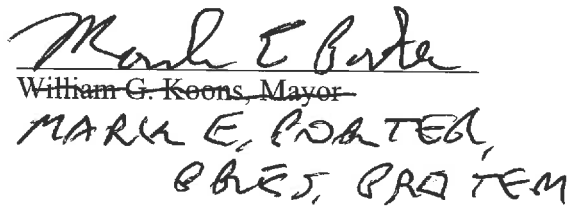 Mark E Porter
William G. Koons, Mayor
MARK E. PORTER,
PRES. PRO TEM